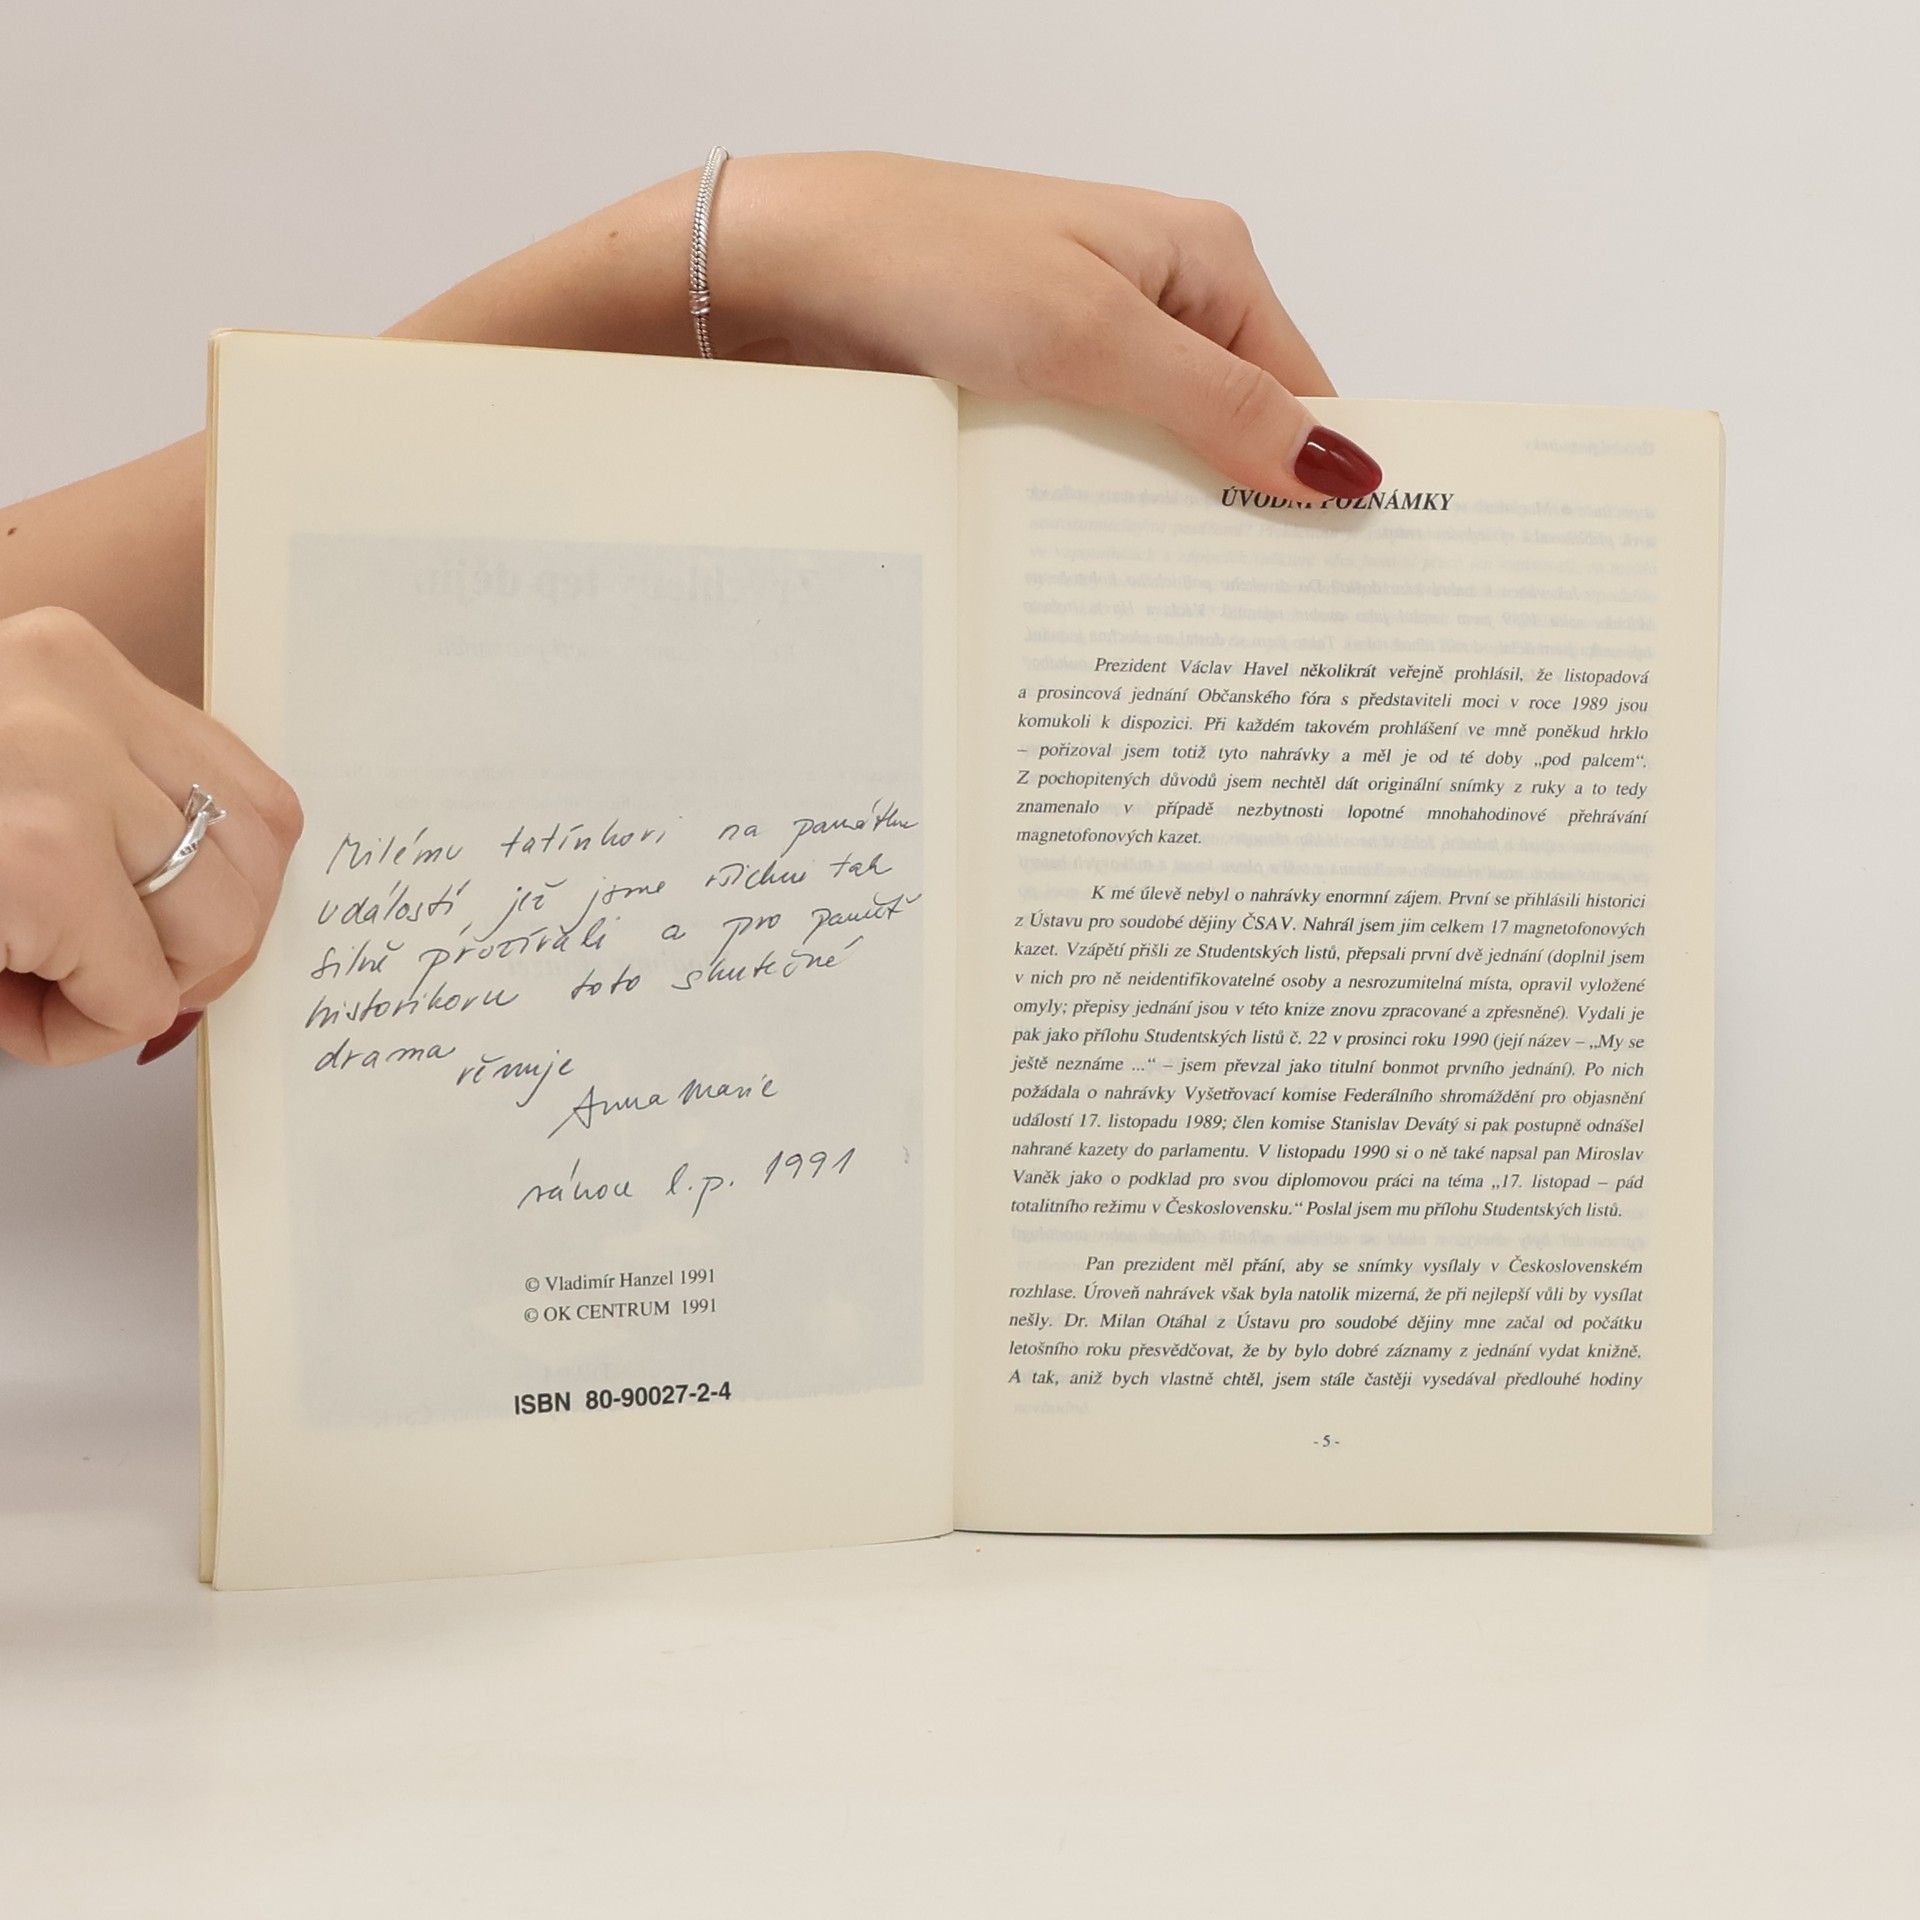 Milému tatínkovi na památku
událostí, jež jsme všichni tak
silně prožívali a pro paměť
historikovu toto skutečné
drama věnuje
Anna Marie
vánoce l.p. 1991
© Vladimír Hanzel 1991
© OK CENTRUM 1991
ISBN 80-90027-2-4
ÚVODNÍ POZNÁMKY
Prezident Václav Havel několikrát veřejně prohlásil, že listopadová
a prosincová jednání Občanského fóra s představiteli moci v roce 1989 jsou
komukoli k dispozici. Při každém takovém prohlášení ve mně poněkud hrklo
– pořizoval jsem totiž tyto nahrávky a měl je od té doby „pod palcem“.
Z pochopitených důvodů jsem nechtěl dát originální snímky z ruky a to tedy
znamenalo v případě nezbytnosti lopotné mnohahodinové přehrávání
magnetofonových kazet.
K mé úlevě nebyl o nahrávky enormní zájem. První se přihlásili historici
z Ústavu pro soudobé dějiny ČSAV. Nahrál jsem jim celkem 17 magnetofonových
kazet. Vzápětí přišli ze Studentských listů, přepsali první dvě jednání (doplnil jsem
v nich pro ně neidentifikovatelné osoby a nesrozumitelná místa, opravil vyložené
omyly; přepisy jednání jsou v této knize znovu zpracované a zpřesněné). Vydali je
pak jako přílohu Studentských listů č. 22 v prosinci roku 1990 (její název – „My se
ještě neznáme ...“ – jsem převzal jako titulní bonmot prvního jednání). Po nich
požádala o nahrávky Vyšetřovací komise Federálního shromáždění pro objasnění
událostí 17. listopadu 1989; člen komise Stanislav Devátý si pak postupně odnášel
nahrané kazety do parlamentu. V listopadu 1990 si o ně také napsal pan Miroslav
Vaněk jako o podklad pro svou diplomovou práci na téma „17. listopad – pád
totalitního režimu v Československu.“ Poslal jsem mu přílohu Studentských listů.
Pan prezident měl přání, aby se snímky vysílaly v Československém
rozhlase. Úroveň nahrávek však byla natolik mizerná, že při nejlepší vůli by vysílat
nešly. Dr. Milan Otáhal z Ústavu pro soudobé dějiny mne začal od počátku
letošního roku přesvědčovat, že by bylo dobré záznamy z jednání vydat knižně.
A tak, aniž bych vlastně chtěl, jsem stále častěji vysedával předlouhé hodiny
- 5 -